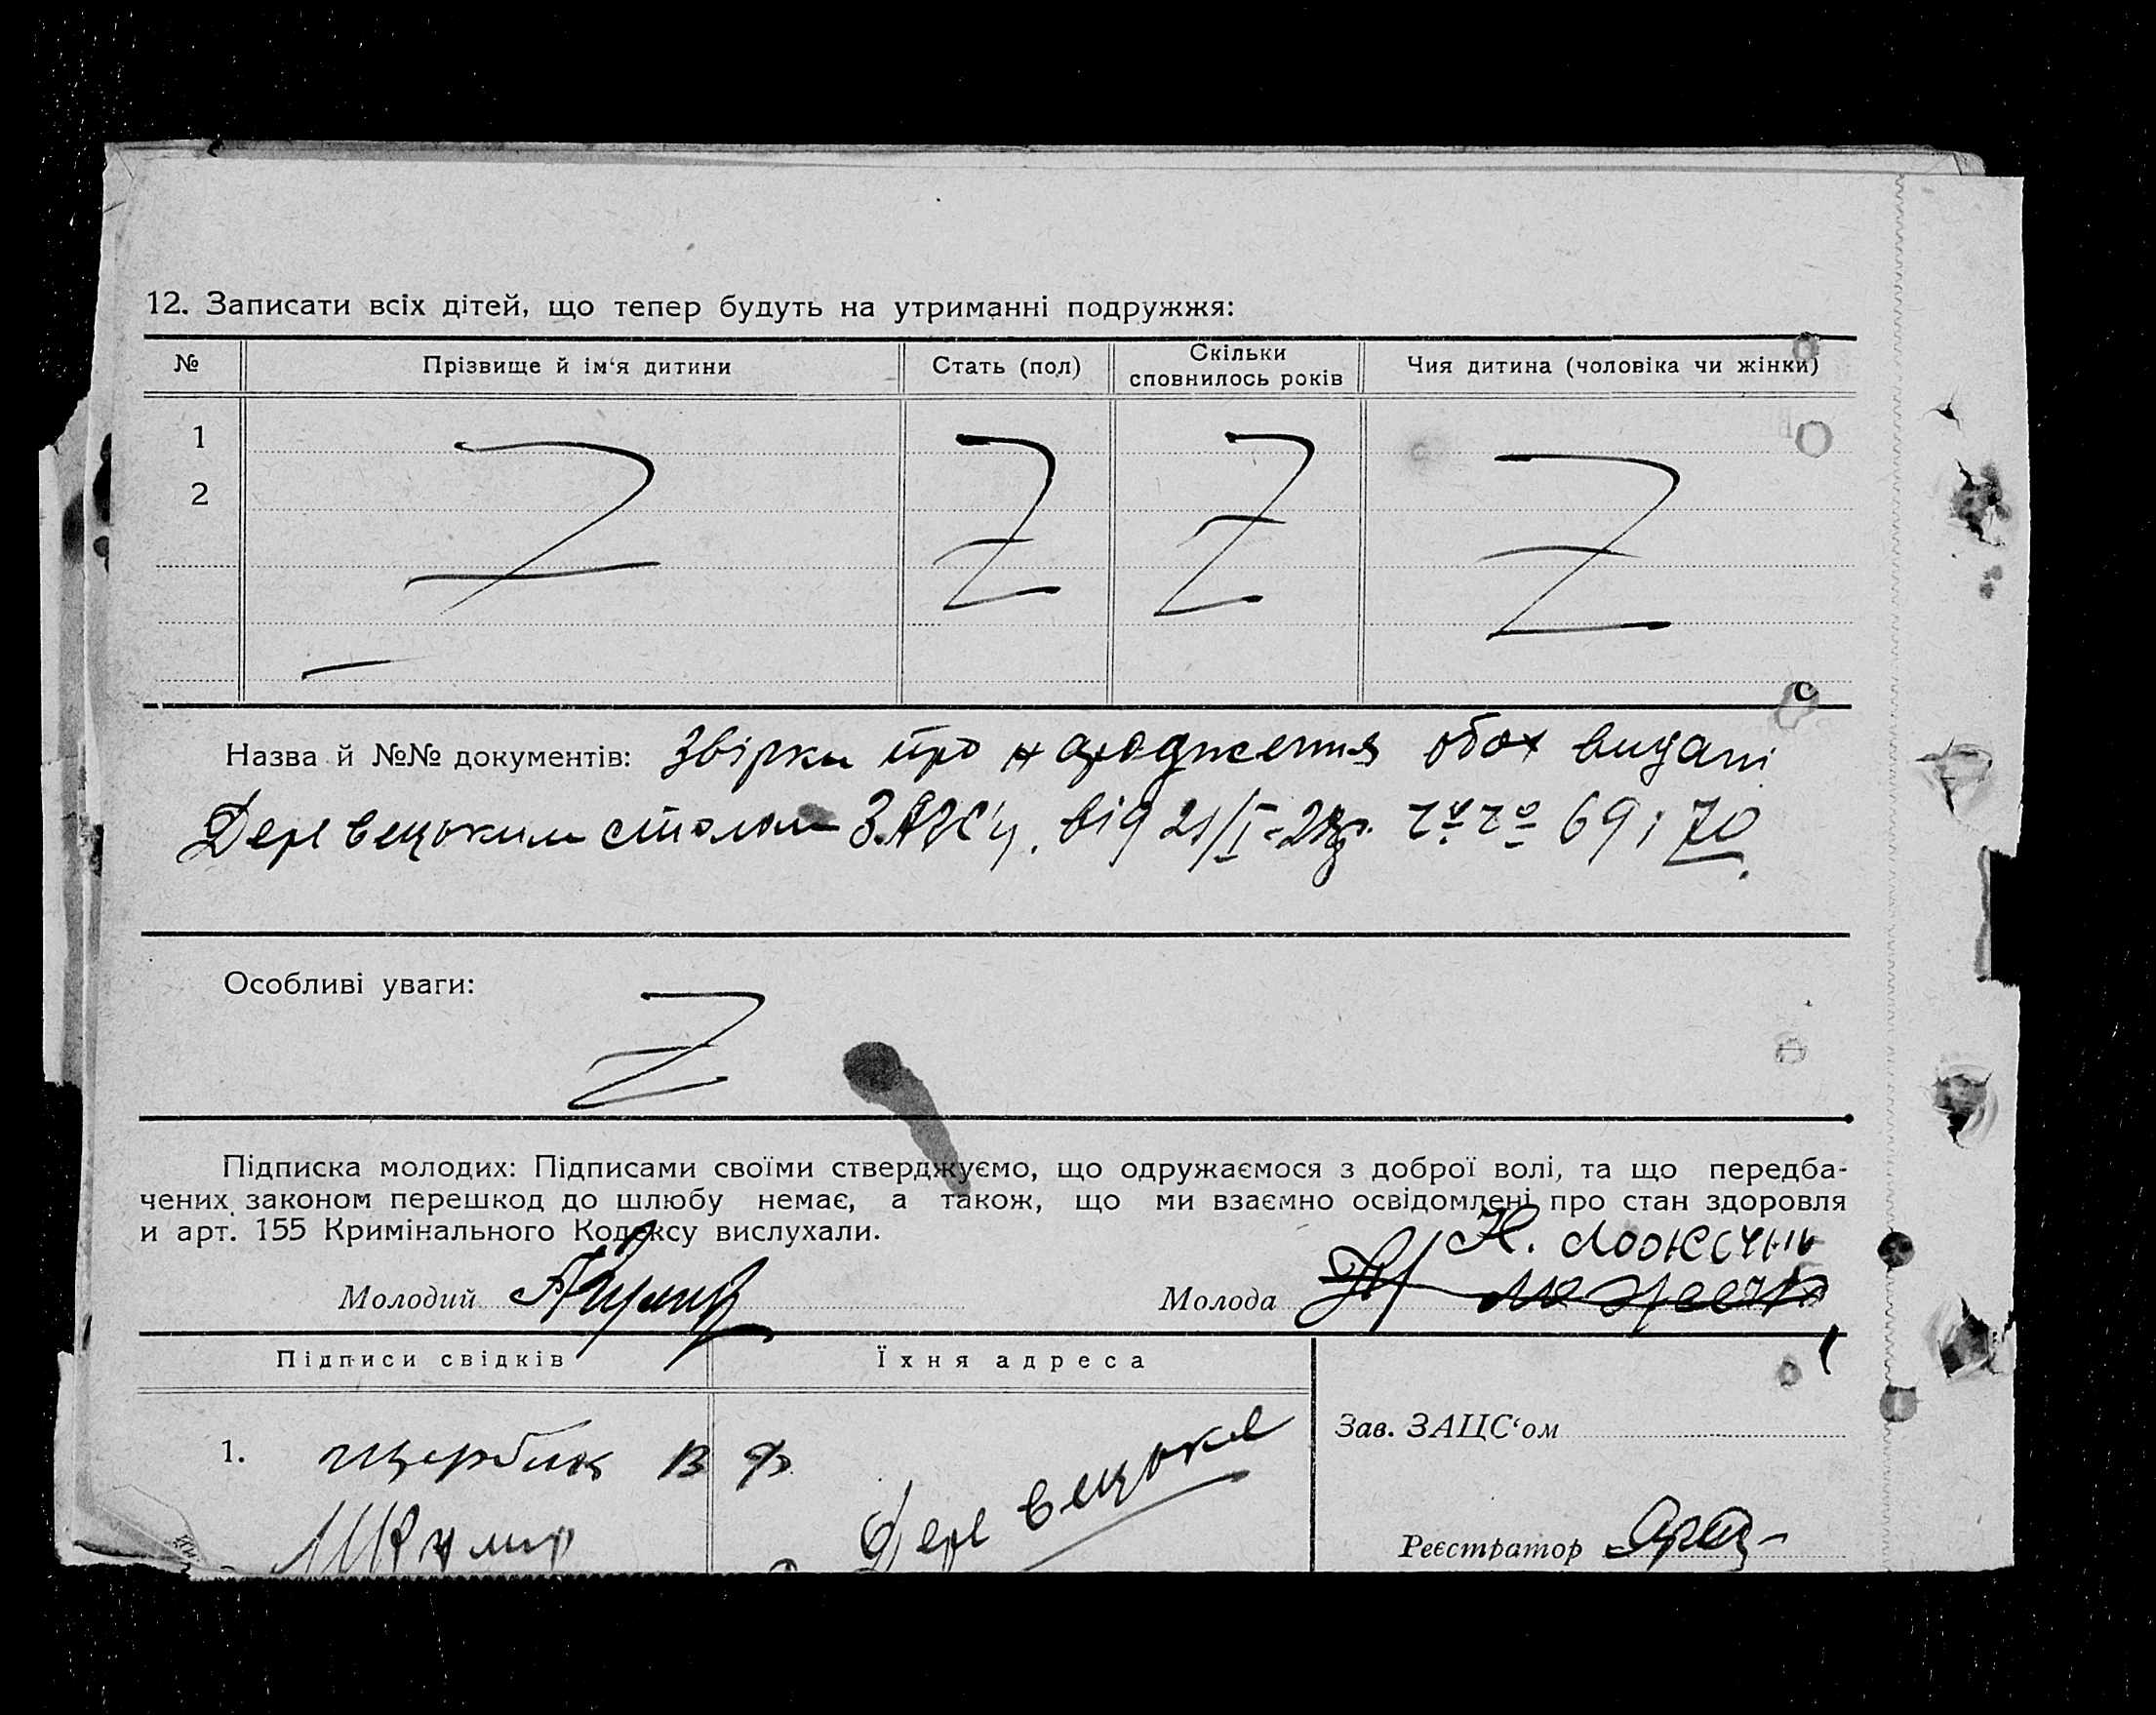 12. Записати всіх дітей, що тепер будуть на утриманні подружжя:
№ Прізвище й ім‘я дитини Стать (пол) Скільки сповнилось років Чия дитина (чоловіка чи жінки)
1 Z Z Z Z
2
Назва й №№ документів: Звірки про народження обох видані
Деревецьким столом ЗАГСу, від 21/I 69 і 70
Особливі уваги: Z
Підписка молодих: Підписами своїми стверджуємо, що одружаємося з доброї волі, та що передба-
чених законом перешкод до шлюбу немає, а також, що ми взаємно освідомлені про стан здоровля
и арт. 155 Кримінального Кодексу вислухали.
Молодий Молода Н.
Підписи свідків Їхня адреса
Зав. ЗАЦС‘ом
1. Щербик В Ф Деревецьке
Реєстратор